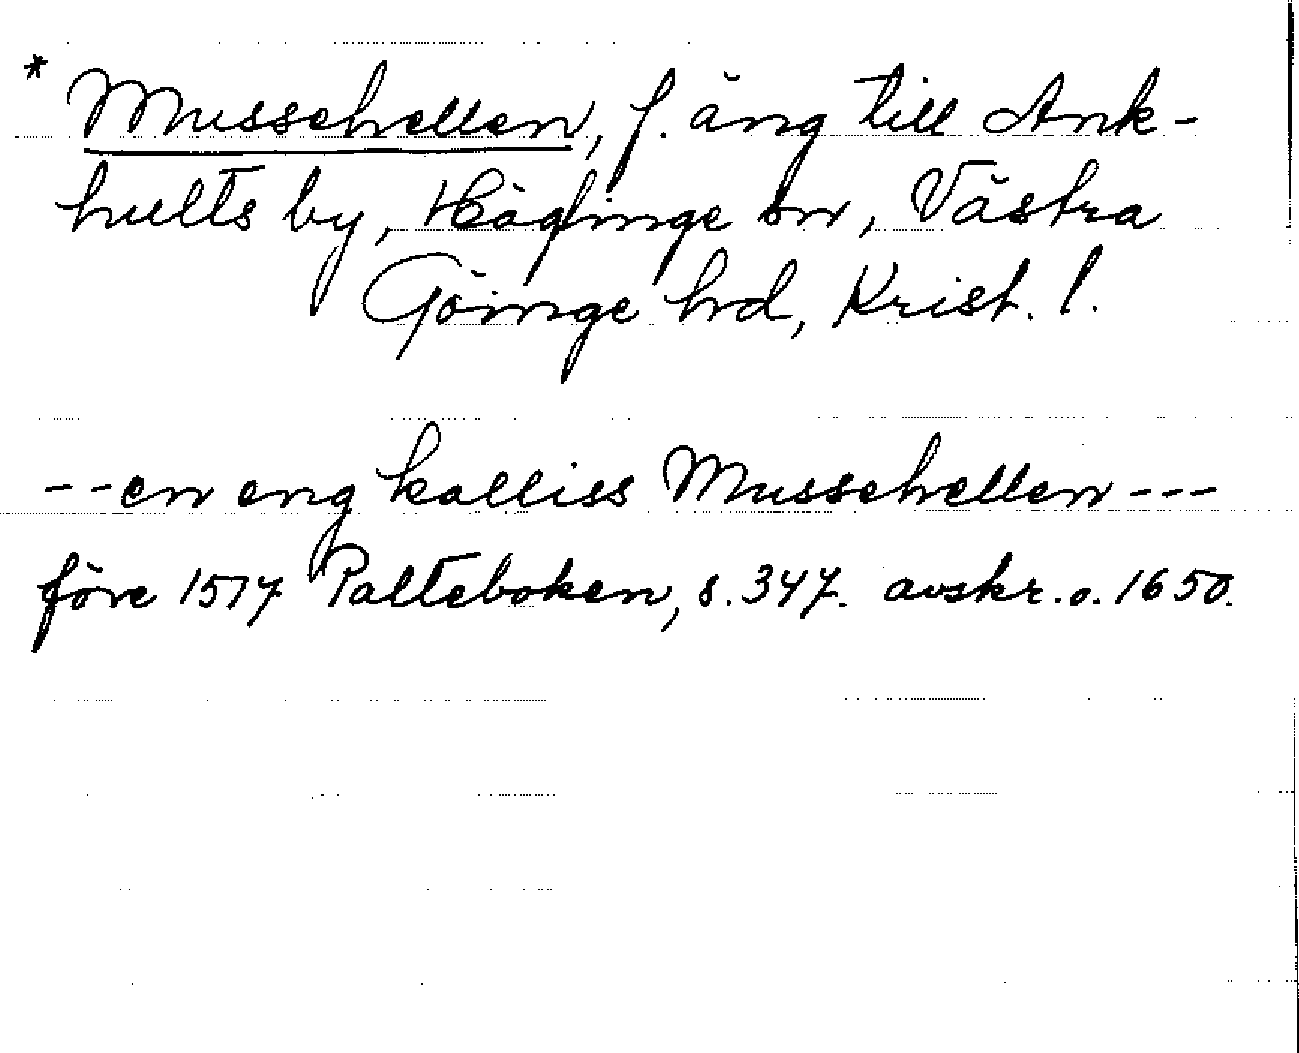 * Mussehellen, f. äng till Ank-
hults by, Häglinge sn, Västra
Göinge hrd, Krist. l.
--en eng kalliss Mussehellen---
före 1517 Palteboken, s. 347. avskr. o. 1650.